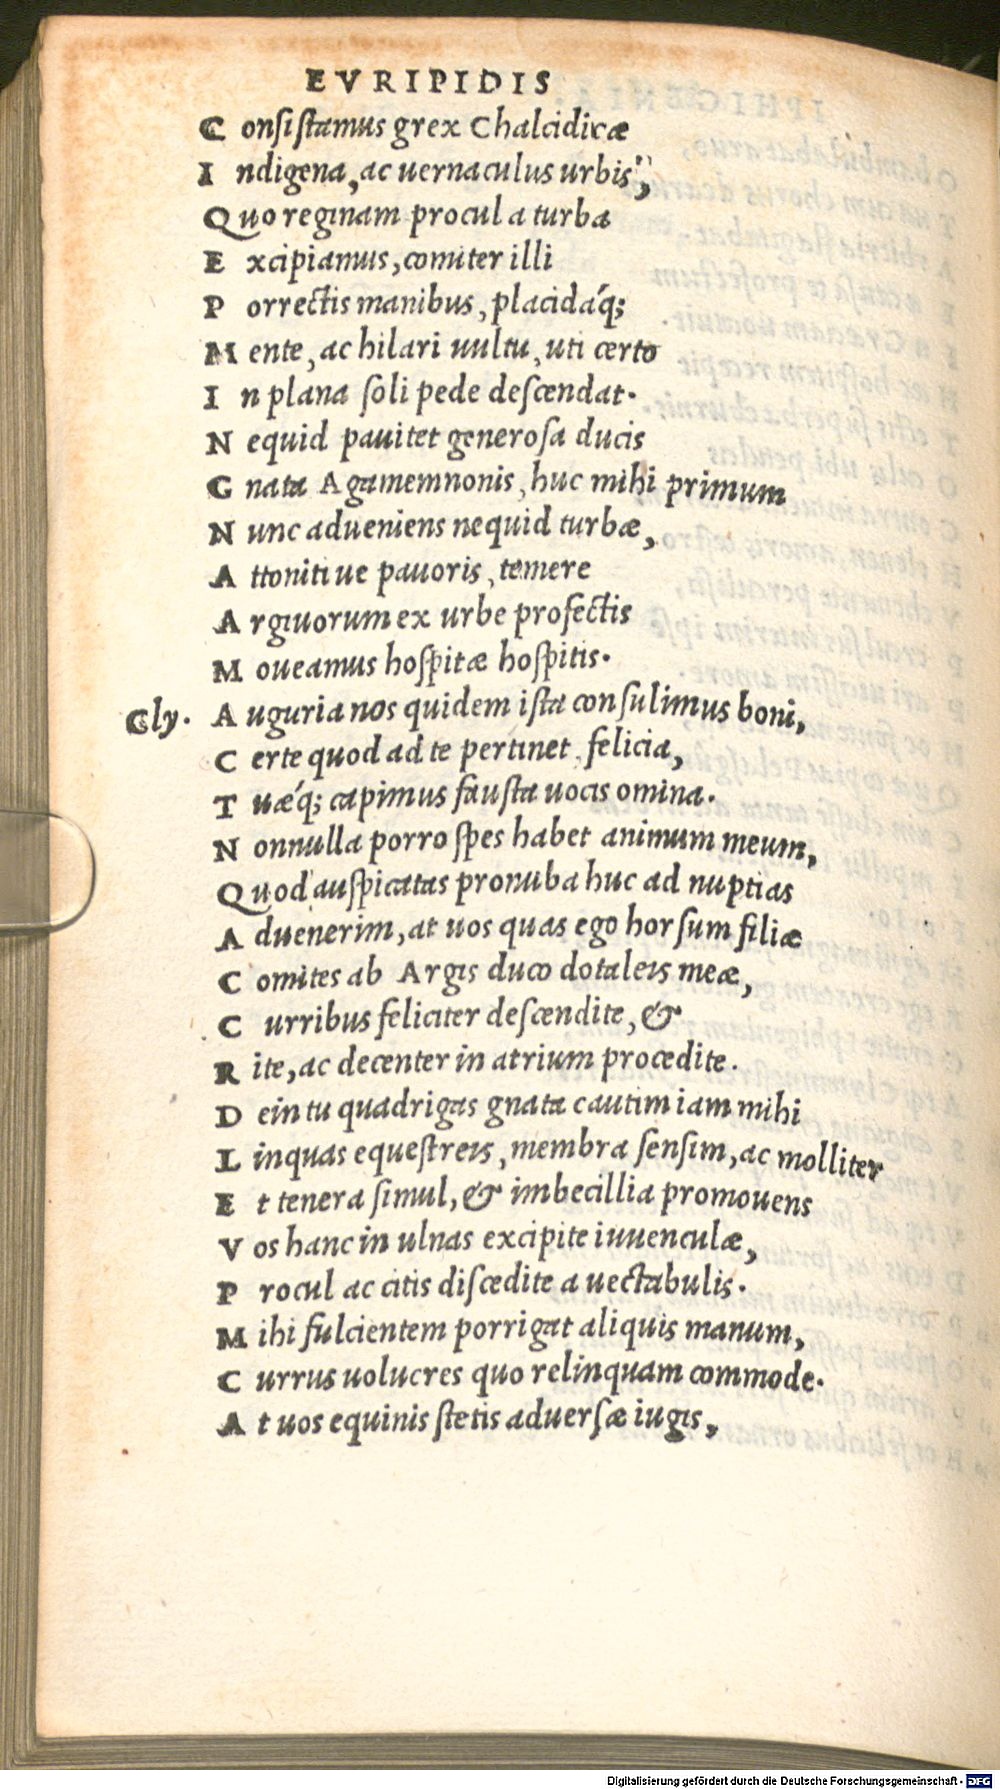 EVRIPIDIS
Consistamus grex Chalcidicæ
Indigena, ac uernaculus urbis,
Quo reginam procul a turba
Excipiamus, comiter illi
Porrectis manibus, placidáq;
Mente, ac hilari uultu, uti certo
In plana soli pede descendat.
Nequid pauitet generosa ducis
Gnata Agamemnonis, huc mihi primum
Nunc adueniens nequid turbæ,
Attoniti ue pauoris, temere
Argiuorum ex urbe profectis
Moueamus hospitæ hospitis.
Cly. Auguria nos quidem ista consulimus boni,
Certe quod ad te pertinet, felicia,
Tuǽq; capimus fausta uocis omina.
Nonnulla porro spes habet animum meum,
Quod auspicatas pronuba huc ad nuptias
Aduenerim, at uos quas ego horsum filiæ
Comites ab Argis duco dotaleis meæ,
Curribus feliciter descendite, &
Rite, ac decenter in atrium procedite.
Dein tu quadrigas gnata cautim iam mihi
Linquas equestreis, membra sensim, ac molliter
Et tenera simul, & imbecillia promouens
Vos hanc in ulnas excipite iuuenculæ,
Procul ac citis discedite a uectabulis.
Mihi fulcientem porrigat aliquis manum,
Currus uolucres quo relinquam commode.
At uos equinis stetis aduersæ iugis,
Digitalisierung gefördert durch die Deutsche Forschungsgemeinschaft - DFG